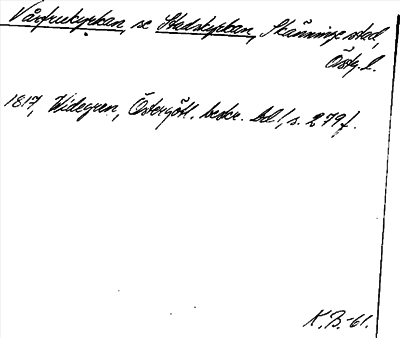 Vårfrukyrkan, se Stadskyrkan, Skänninge stad,
Östg. l.
1817, Widegren, Östergötl. beskr. bd 1, s. 279 f.
K.B. -61.